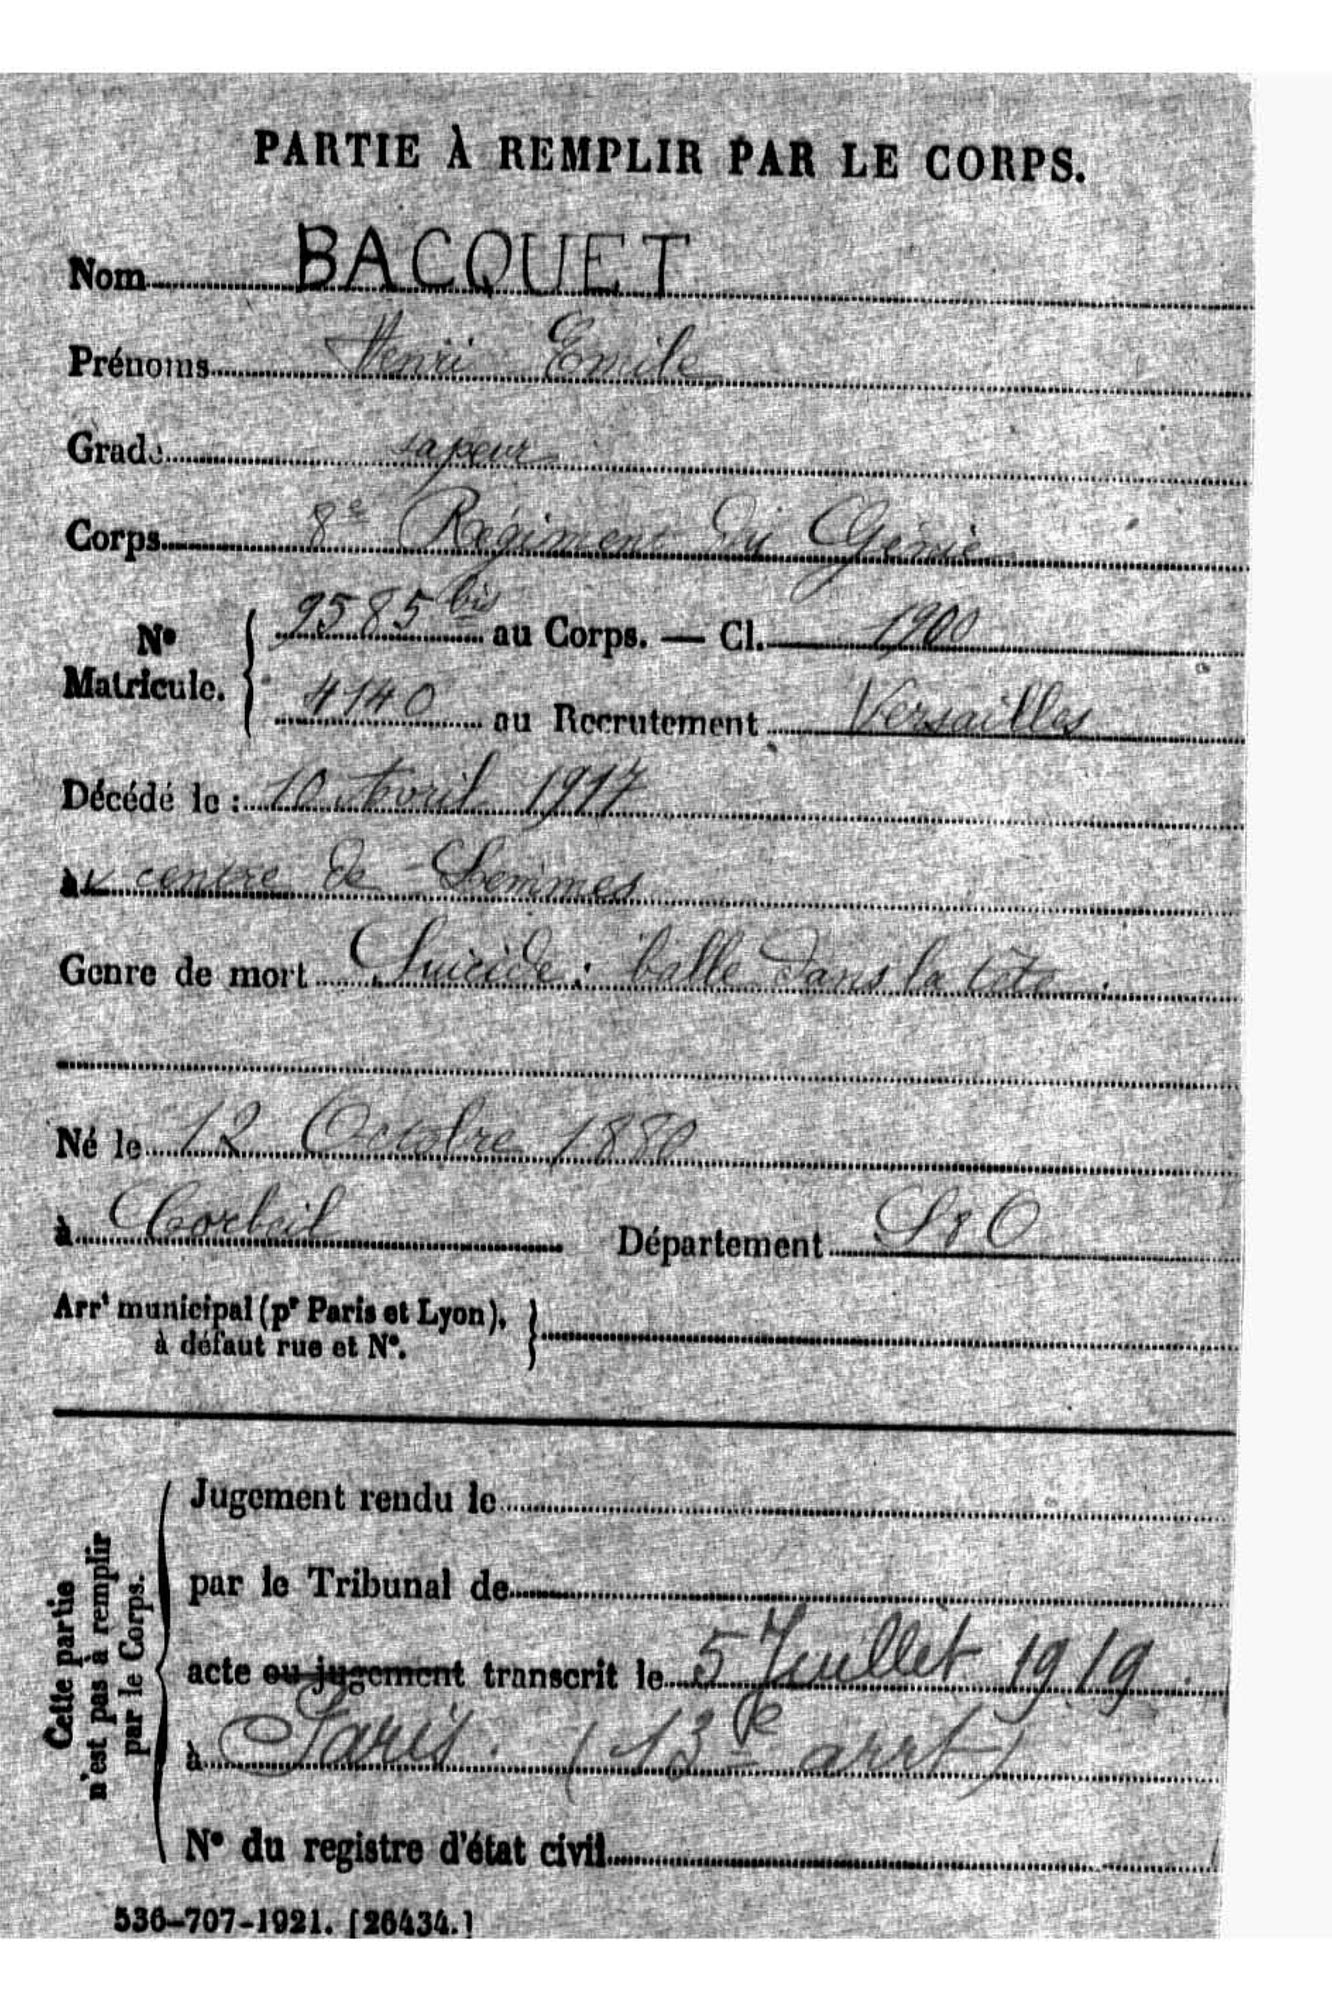 PARTIE À REMPLIR PAR LE CORPS.
Nom BACQUET
Prénoms Henri Emile
Grade sapeur
Corps 8e Régiment du Génie
No Matricule. { 9585 bis au Corps. — Cl. 1900
4140 au Recrutement Versailles
Décédé le : 10 Avril 1917
au centre de
Genre de mort Suicide : balle dans la tête.
Né le 12 Octobre 1880
à Corbeil Département S & O
Arrt municipal (pr Paris et Lyon), }
à défaut rue et No.
Cette partie
n'est pas à remplir
par le Corps.
Jugement rendu le
par le Tribunal de
acte ou jugement transcrit le 5 Juillet 1919.
à Paris. (13e arrt)
No du registre d'état civil
536-707-1921. [26434.]